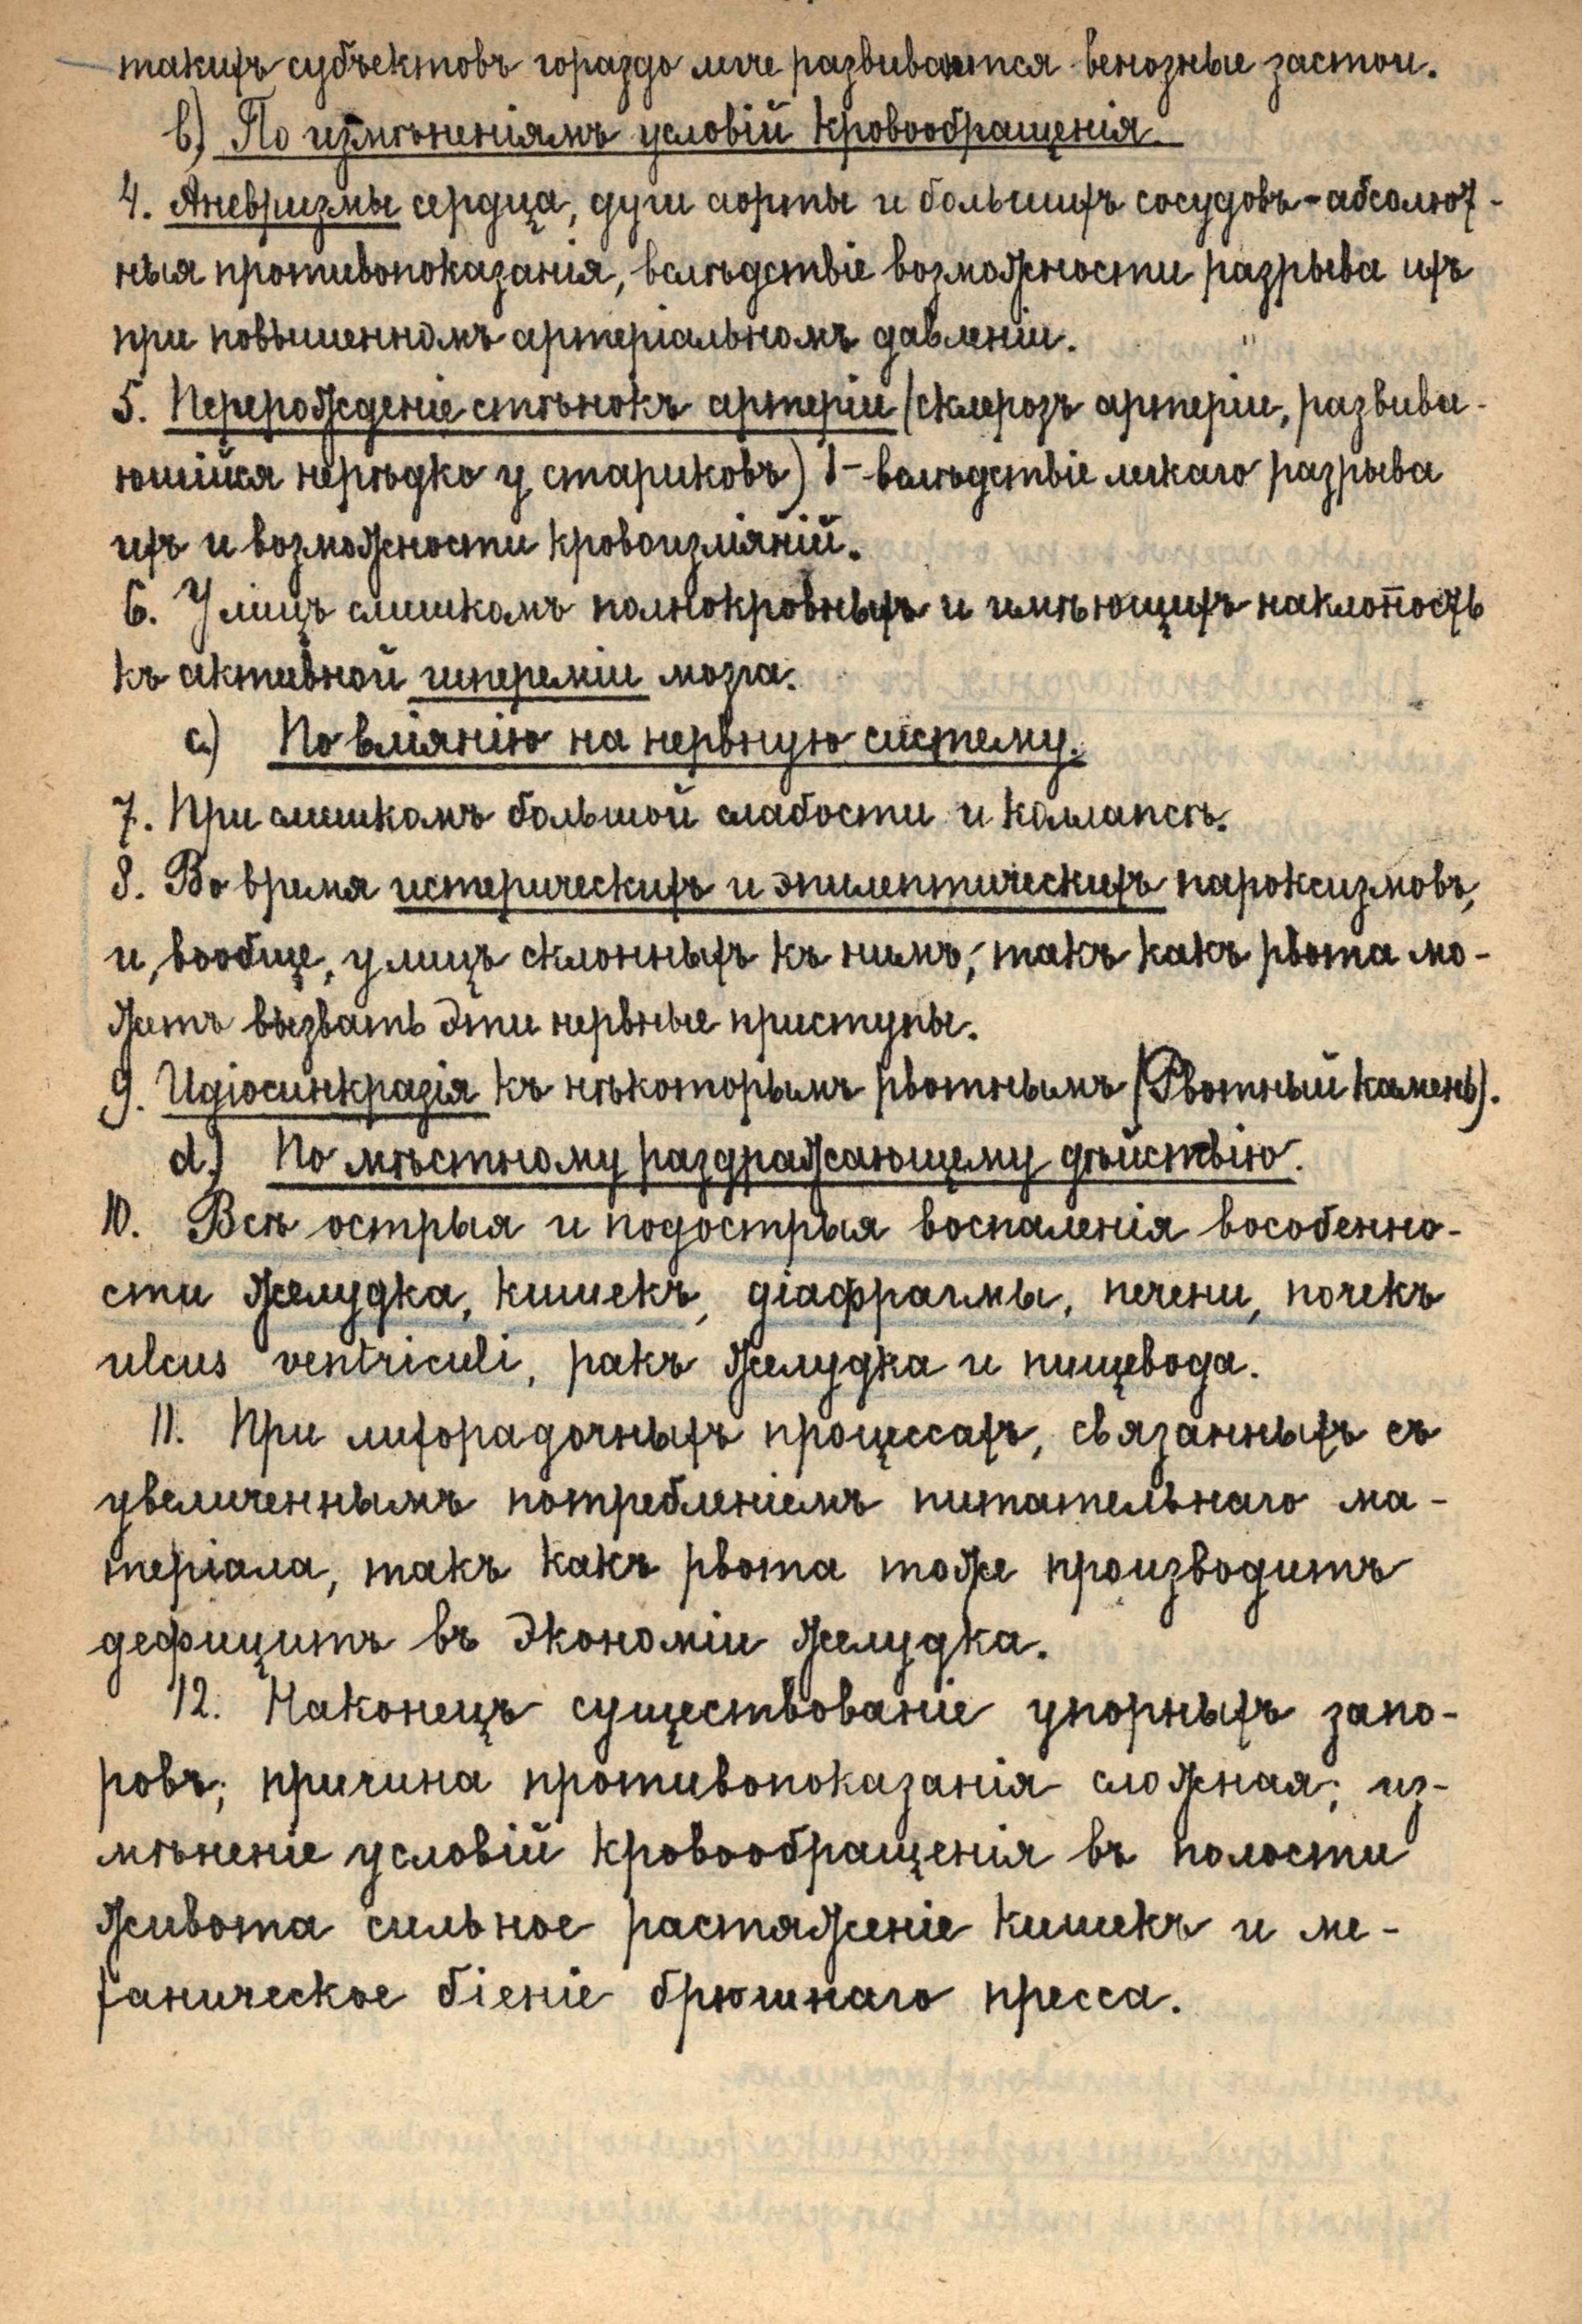 такихъ субъектовъ гораздо легче развиваются венозные застои.
b) По измѣненіямъ условій кровообращенія.
4. Аневризмы сердца, дуги аорты и большихъ сосудовъ - абсолют-
ныя противопоказанія, вслѣдствіе возможности разрыва ихъ
при повышенномъ артеріальномъ давленіи.
5. Перерожденіе стѣнокъ артеріи (склерозъ артеріи, развива-
ющійся нерѣдко у стариковъ) - вслѣдствіе легкаго разрыва
ихъ и возможности кровоизліяній.
6. У лицъ слишкомъ полнокровныхъ и имѣющихъ наклоность
къ активной гипереміи мозга.
c) По вліянію на нервную систему.
7. При слишкомъ большой слабости и коллапсѣ.
8. Во время истерическихъ и эпилептическихъ пароксизмовъ,
и, вообще, у лицъ склонныхъ къ нимъ, такъ какъ рвота мо-
жетъ вызвать эти нервные приступы.
9. Идіосинкразія къ нѣкоторымъ рвотнымъ (Рвотный камень).
d) По мѣстному раздражающему дѣйствію.
10. Всѣ острыя и подострыя воспаленія вособенно-
сти желудка, кишекъ, діафрагмы, печени, почекъ
ulcus ventriculi, ракъ желудка и пищевода.
11. При лихорадочныхъ процессахъ, связанныхъ съ
увеличеннымъ потребленіемъ питательнаго ма-
теріала, такъ какъ рвота тоже производитъ
дефицитъ въ экономіи желудка.
12. Наконецъ существованіе упорныхъ запо-
ровъ; причина противопоказанія сложная; из-
мѣненіе условій кровообращенія въ полости
живота сильное растяженіе кишекъ и ме-
ханическое біеніе брюшнаго пресса.